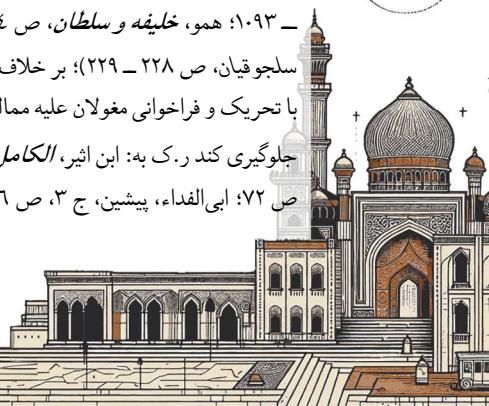 ــ ۱۰۹۳؛ همو، خلیفه و سلطان، ص
سلجوقیان، ص ۲۲۸ ــ ۲۲۹)؛ بر خلاف
با تحریک و فراخوانی مغولان علیه ممال
جلوگیری کند ر.ک به: ابن اثیر، الکامل
ص ۷۲؛ ابی‌الفداء، پیشین، ج ۳، ص ٦